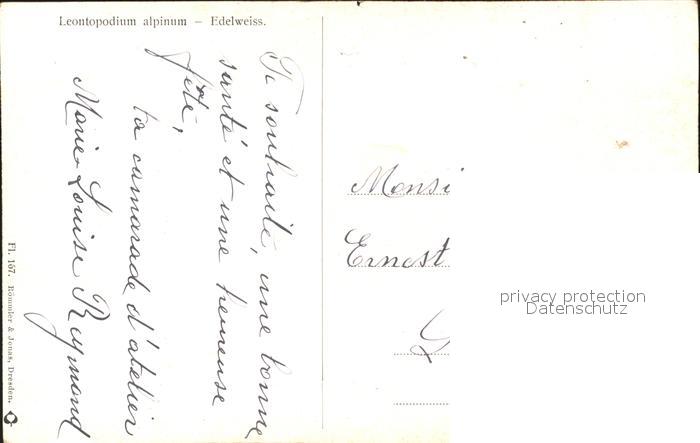 Leontopodium alpinum – Edelweiss.
Te souhaite, une bonne
santé et une heureuse
fête,
ta camarade d'atelier
Marie-Louise Reymond
Fl. 167. Römmler & Jonas, Dresden.
Monsi
Ernest
privacy protection
Datenschutz